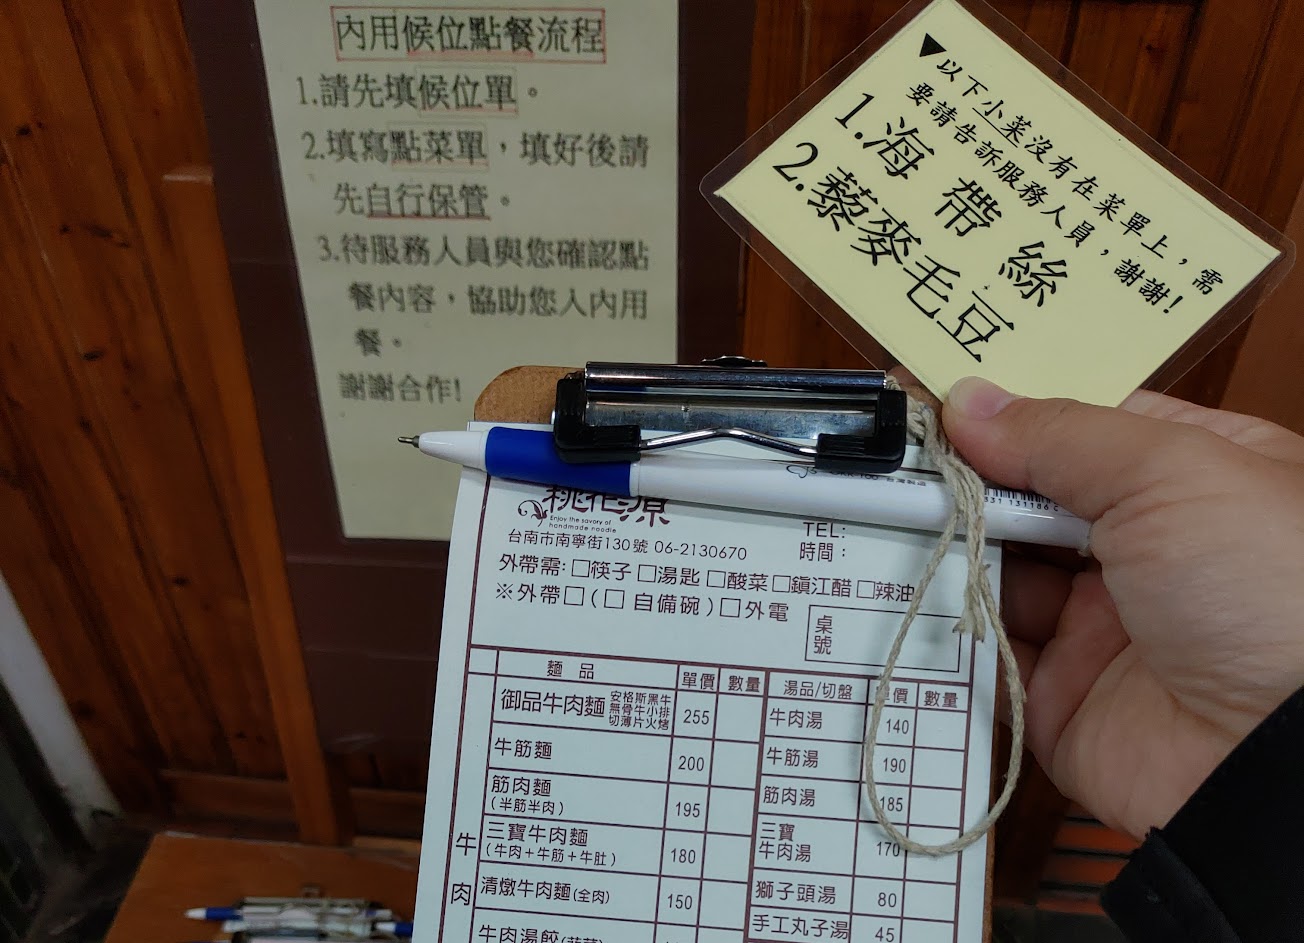 內用候位點餐流程
1.請先填候位單。
2.填寫點菜單，填好後請
先自行保管。
3.待服務人員與您確認點
餐內容，協助您入內用
餐。
謝謝合作!
▼以下小菜沒有在菜單上，需
要請告訴服務人員，謝謝!
1.海帶絲
2.藜麥毛豆
桃花源
Enjoy the savory of
handmade noodle
台南市南寧街130號 06-2130670
TEL:
時間：
外帶需:□筷子 □湯匙 □酸菜 □鎮江醋 □辣油
※外帶□(□ 自備碗)□外電
桌號
麵 品 單價 數量 湯品/切盤 單價 數量
牛肉
御品牛肉麵 安格斯黑牛 無骨牛小排 切薄片火烤 255
牛肉湯 140
牛筋麵 200
牛筋湯 190
筋肉麵 (半筋半肉) 195
筋肉湯 185
三寶牛肉麵 (牛肉＋牛筋＋牛肚) 180
三寶牛肉湯 170
清燉牛肉麵(全肉) 150
獅子頭湯 80
手工丸子湯 45
牛肉湯餃